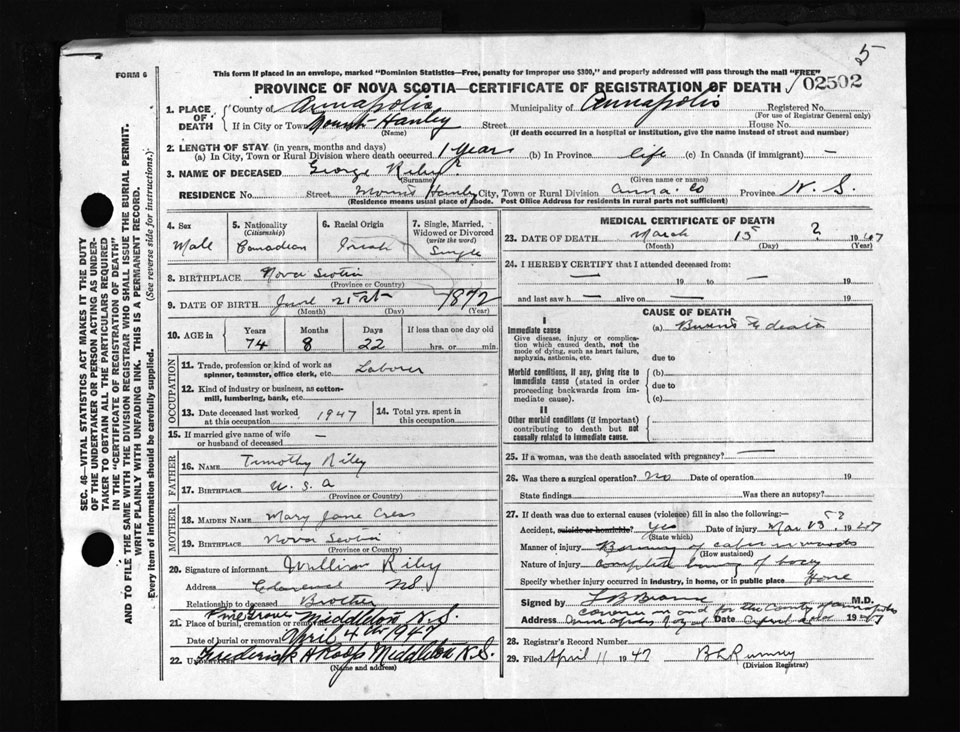 5
FORM 6
This form if placed in an envelope, marked "Dominion Statistics—Free, penalty for improper use $300," and properly addressed will pass through the mail "FREE"
PROVINCE OF NOVA SCOTIA—CERTIFICATE OF REGISTRATION OF DEATH 02502
1. PLACE OF DEATH
County of Annapolis Municipality of Annapolis Registered No.
(For use of Registrar General only)
If in City or Town Mount Hanley Street House No.
(Name) (If death occurred in a hospital or institution, give the name instead of street and number)
2. LENGTH OF STAY (in years, months and days)
(a) In City, Town or Rural Division where death occurred 1 Year (b) In Province life (c) In Canada (if immigrant) —
3. NAME OF DECEASED George Riley
(Surname) (Given name or names)
RESIDENCE No. Street Mount Hanley City, Town or Rural Division Anna. Co Province N. S.
(Residence means usual place of abode. Post Office Address for residents in rural parts not sufficient)
4. Sex
Male
5. Nationality
(Citizenship)
Canadian
6. Racial Origin
Irish
7. Single, Married, Widowed or Divorced
(write the word)
Single
8. BIRTHPLACE Nova Scotia
(Province or Country)
9. DATE OF BIRTH June 21st 1872
(Month) (Day) (Year)
10. AGE in
Years Months Days If less than one day old
74 8 22 hrs. or min.
OCCUPATION
11. Trade, profession or kind of work as spinner, teamster, office clerk, etc. Laborer
12. Kind of industry or business, as cotton-mill, lumbering, bank, etc.
13. Date deceased last worked at this occupation 1947
14. Total yrs. spent in this occupation
15. If married give name of wife or husband of deceased —
FATHER
16. NAME Timothy Riley
17. BIRTHPLACE U. S. A
(Province or Country)
MOTHER
18. MAIDEN NAME Mary Jane Cress
19. BIRTHPLACE Nova Scotia
(Province or Country)
20. Signature of informant William Riley
Address NS.
Relationship to deceased Brother
21. Place of burial, cremation or removal Pine Grove Middleton N.S.
Date of burial or removal April 4th 1947
22. UNDERTAKER Frederick A Roop Middleton N.S.
(Name and address)
MEDICAL CERTIFICATE OF DEATH
23. DATE OF DEATH March 13 ? 1947
(Month) (Day) (Year)
24. I HEREBY CERTIFY that I attended deceased from:
— 19 to — 19
and last saw h — alive on — 19
CAUSE OF DEATH
I
Immediate cause
Give disease, injury or complication which caused death, not the mode of dying, such as heart failure, asphyxia, asthenia, etc.
(a) Burned to death
due to
Morbid conditions, if any, giving rise to immediate cause (stated in order proceeding backwards from immediate cause).
(b)
due to
(c)
II
Other morbid conditions (if important) contributing to death but not causally related to immediate cause.
25. If a woman, was the death associated with pregnancy? —
26. Was there a surgical operation? No Date of operation 19
State findings Was there an autopsy?
27. If death was due to external causes (violence) fill in also the following:—
Accident, suicide or homicide? Yes Date of injury Mar 13 ? 1947
(State which)
Manner of injury Burning of cabin in woods
(How sustained)
Nature of injury Complete burning of body
Specify whether injury occurred in industry, in home, or in public place Home
Signed by M.D.
Coroner in and for the County of Annapolis
Address Annapolis Royal Date 1947
28. Registrar's Record Number
29. Filed April 11 1947 B L Rumsey
(Division Registrar)
SEC. 46—VITAL STATISTICS ACT MAKES IT THE DUTY
OF THE UNDERTAKER OR PERSON ACTING AS UNDER-
TAKER TO OBTAIN ALL THE PARTICULARS REQUIRED
IN THE "CERTIFICATE OF REGISTRATION OF DEATH"
AND TO FILE THE SAME WITH THE DIVISION REGISTRAR WHO SHALL ISSUE THE BURIAL PERMIT.
WRITE PLAINLY WITH UNFADING INK. THIS IS A PERMANENT RECORD.
Every item of information should be carefully supplied. (See reverse side for instructions.)